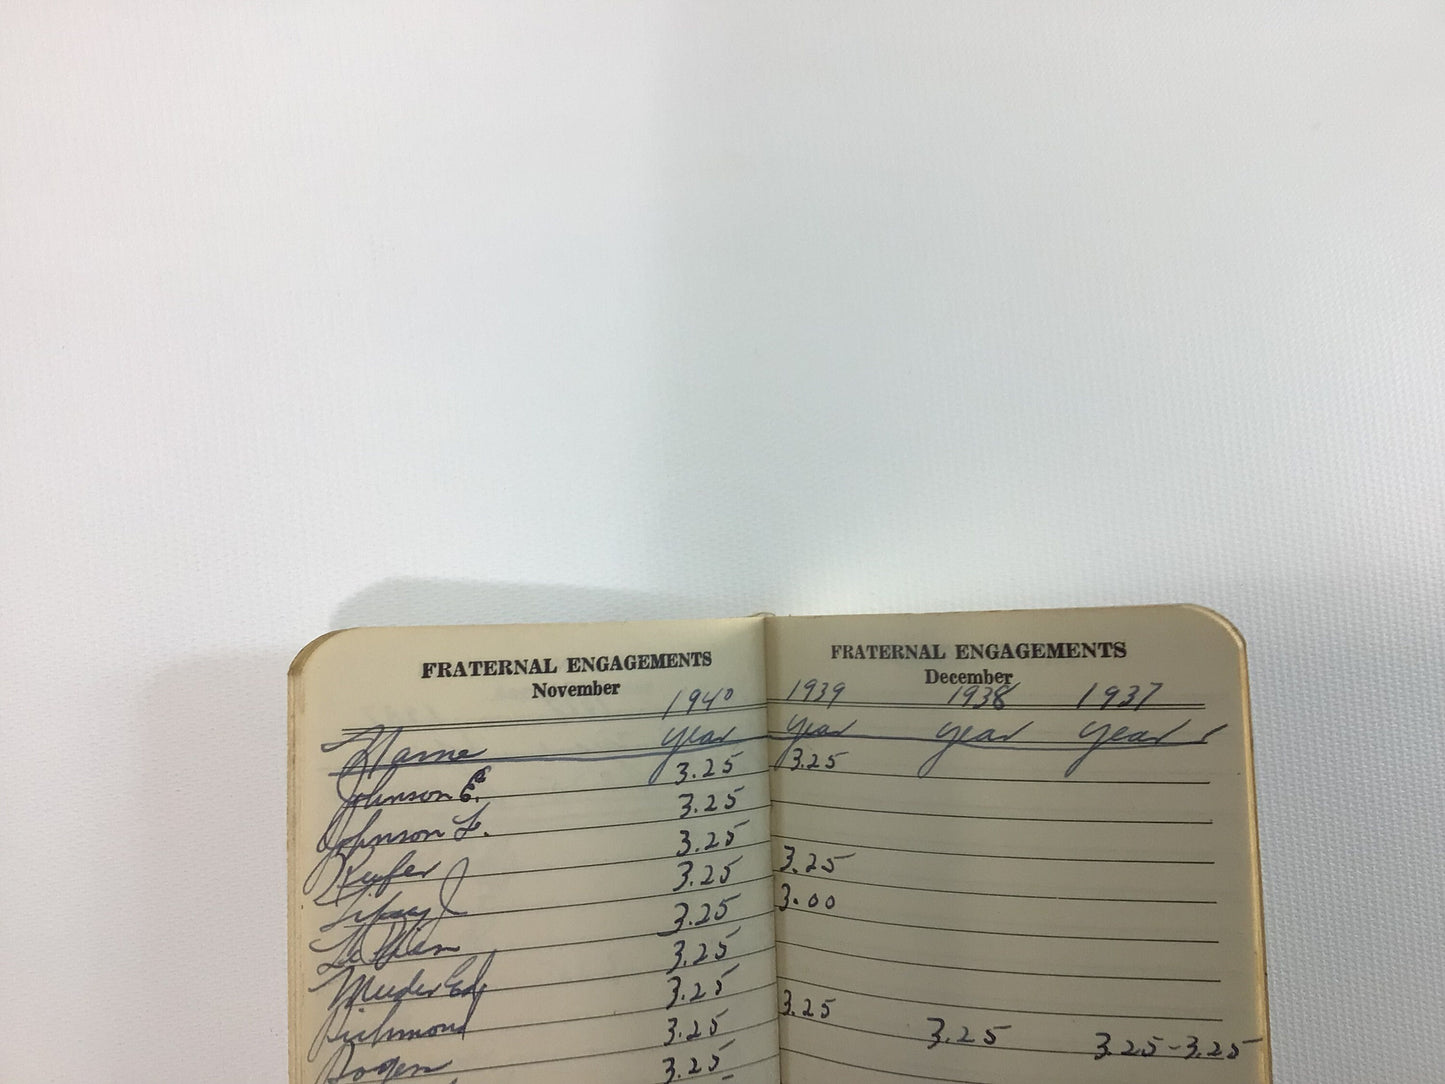 FRATERNAL ENGAGEMENTS
November
1940
Name year
Johnson E. 3.25
Johnson F. 3.25
Kufer 3.25
Lipsey J 3.25
3.25
Meeder Ed 3.25
Richmond 3.25
Rogers 3.25
3.25
FRATERNAL ENGAGEMENTS
December
1939 1938 1937
year year year
3.25
3.25
3.00
3.25
3.25 3.25-3.25